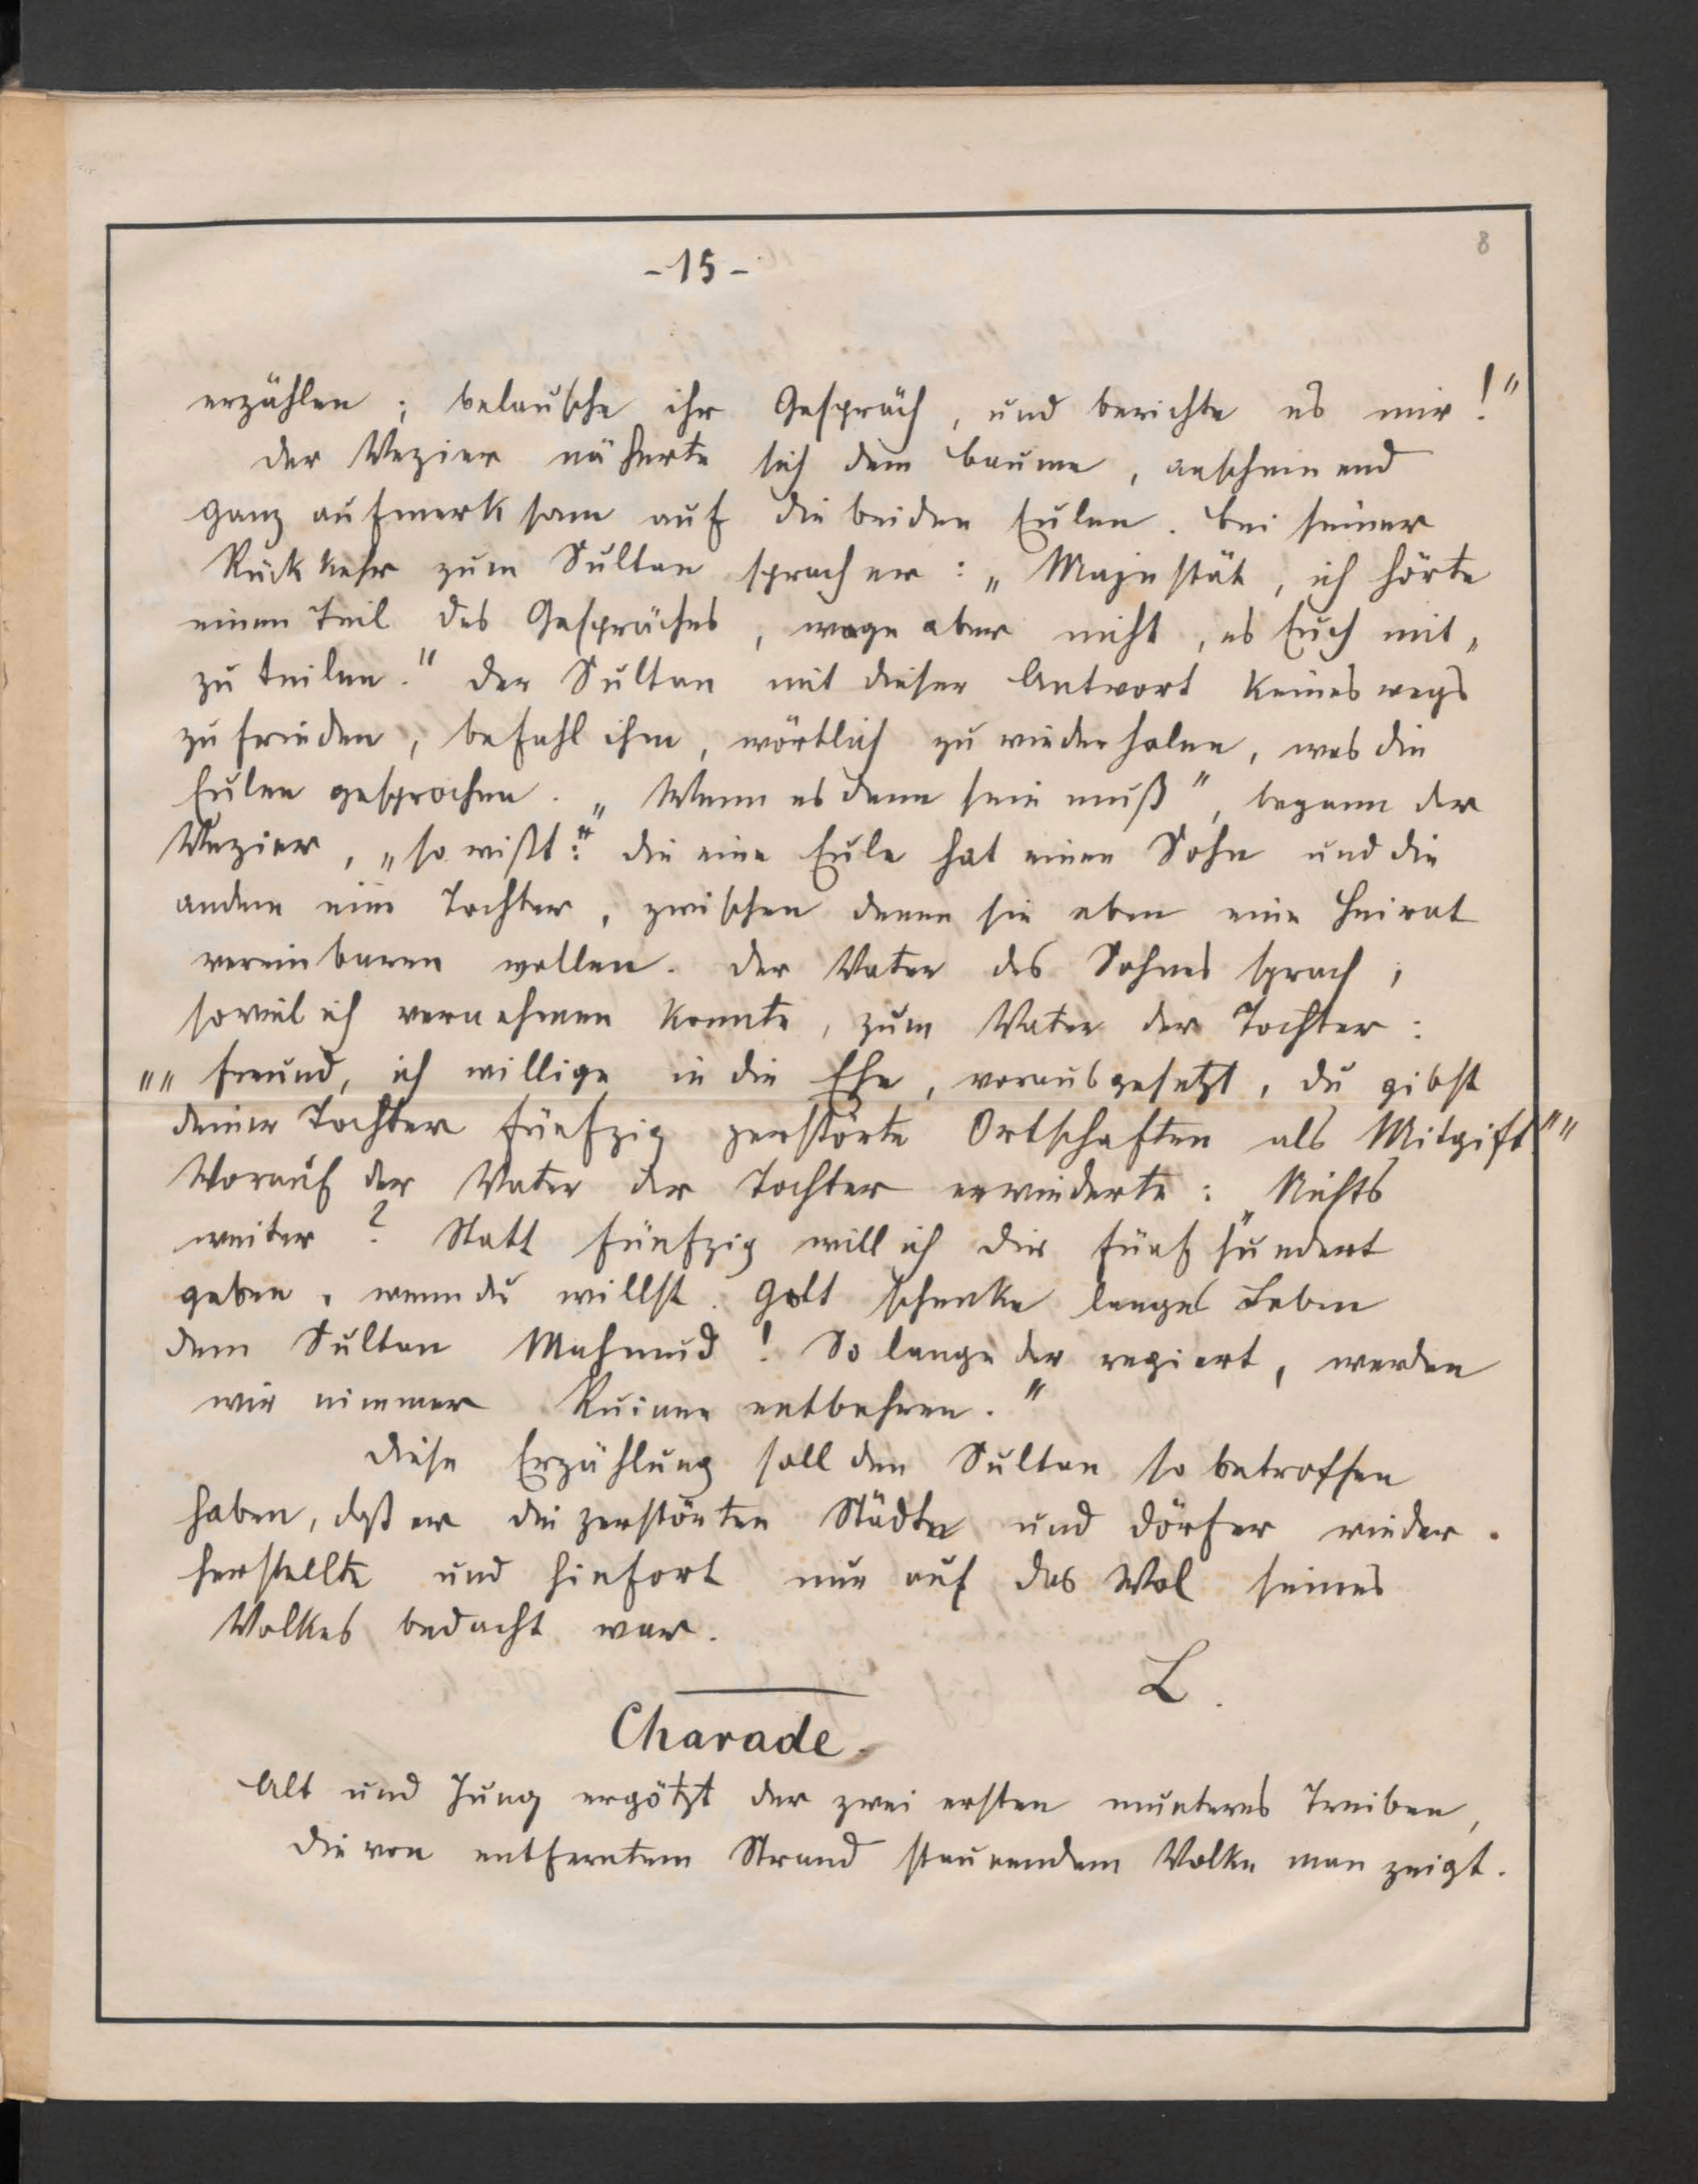 8
-15-
erzählen; belausche ihr Gespräch, und berichte es mir!"
Der Vezier näherte sich dem Baume, anscheinend
ganz aufmerksam auf die beiden Eulen. Bei seiner
Rückkehr zum Sultan sprach er: „Majestät, ich hörte
einen Teil des Gespräches, wage aber nicht, es Euch mit„
zu teilen." Der Sultan mit dieser Antwort keineswegs
zufrieden, befahl ihm, wörtlich zu wiederholen, was die
Eulen gesprochen. „Wenn es denn sein muß", begann der
Vezier, „so wißt:" die eine Eule hat einen Sohn und die
andere eine Tochter, zwischen denen sie eben eine Heirat
vereinbaren wollen. Der Vater des Sohnes sprach,
soviel ich vernehmen konnte, zum Vater der Tochter:
„„Freund, ich willige in die Ehe, vorausgesetzt, du gibst
deiner Tochter fünfzig zerstörte Ortschaften als Mitgift.""
Worauf der Vater der Tochter erwiederte: „Nichts
weiter? Statt fünfzig will ich dir fünfhundert
geben, wenn du willst. Gott schenke langes Leben
dem Sultan Mahmud! So lange der regiert, werden
wir nimmer Ruinen entbehren."
Diese Erzählung soll den Sultan so betroffen
haben, daß er die zerstörten Städte und Dörfer wieder-
herstellte und hinfort nur auf das Wol seines
Volkes bedacht war.
L.
Charade.
Alt und Jung ergötzt der zwei ersten munteres Treiben,
Die von entferntem Strand staunendem Volke man zeigt.